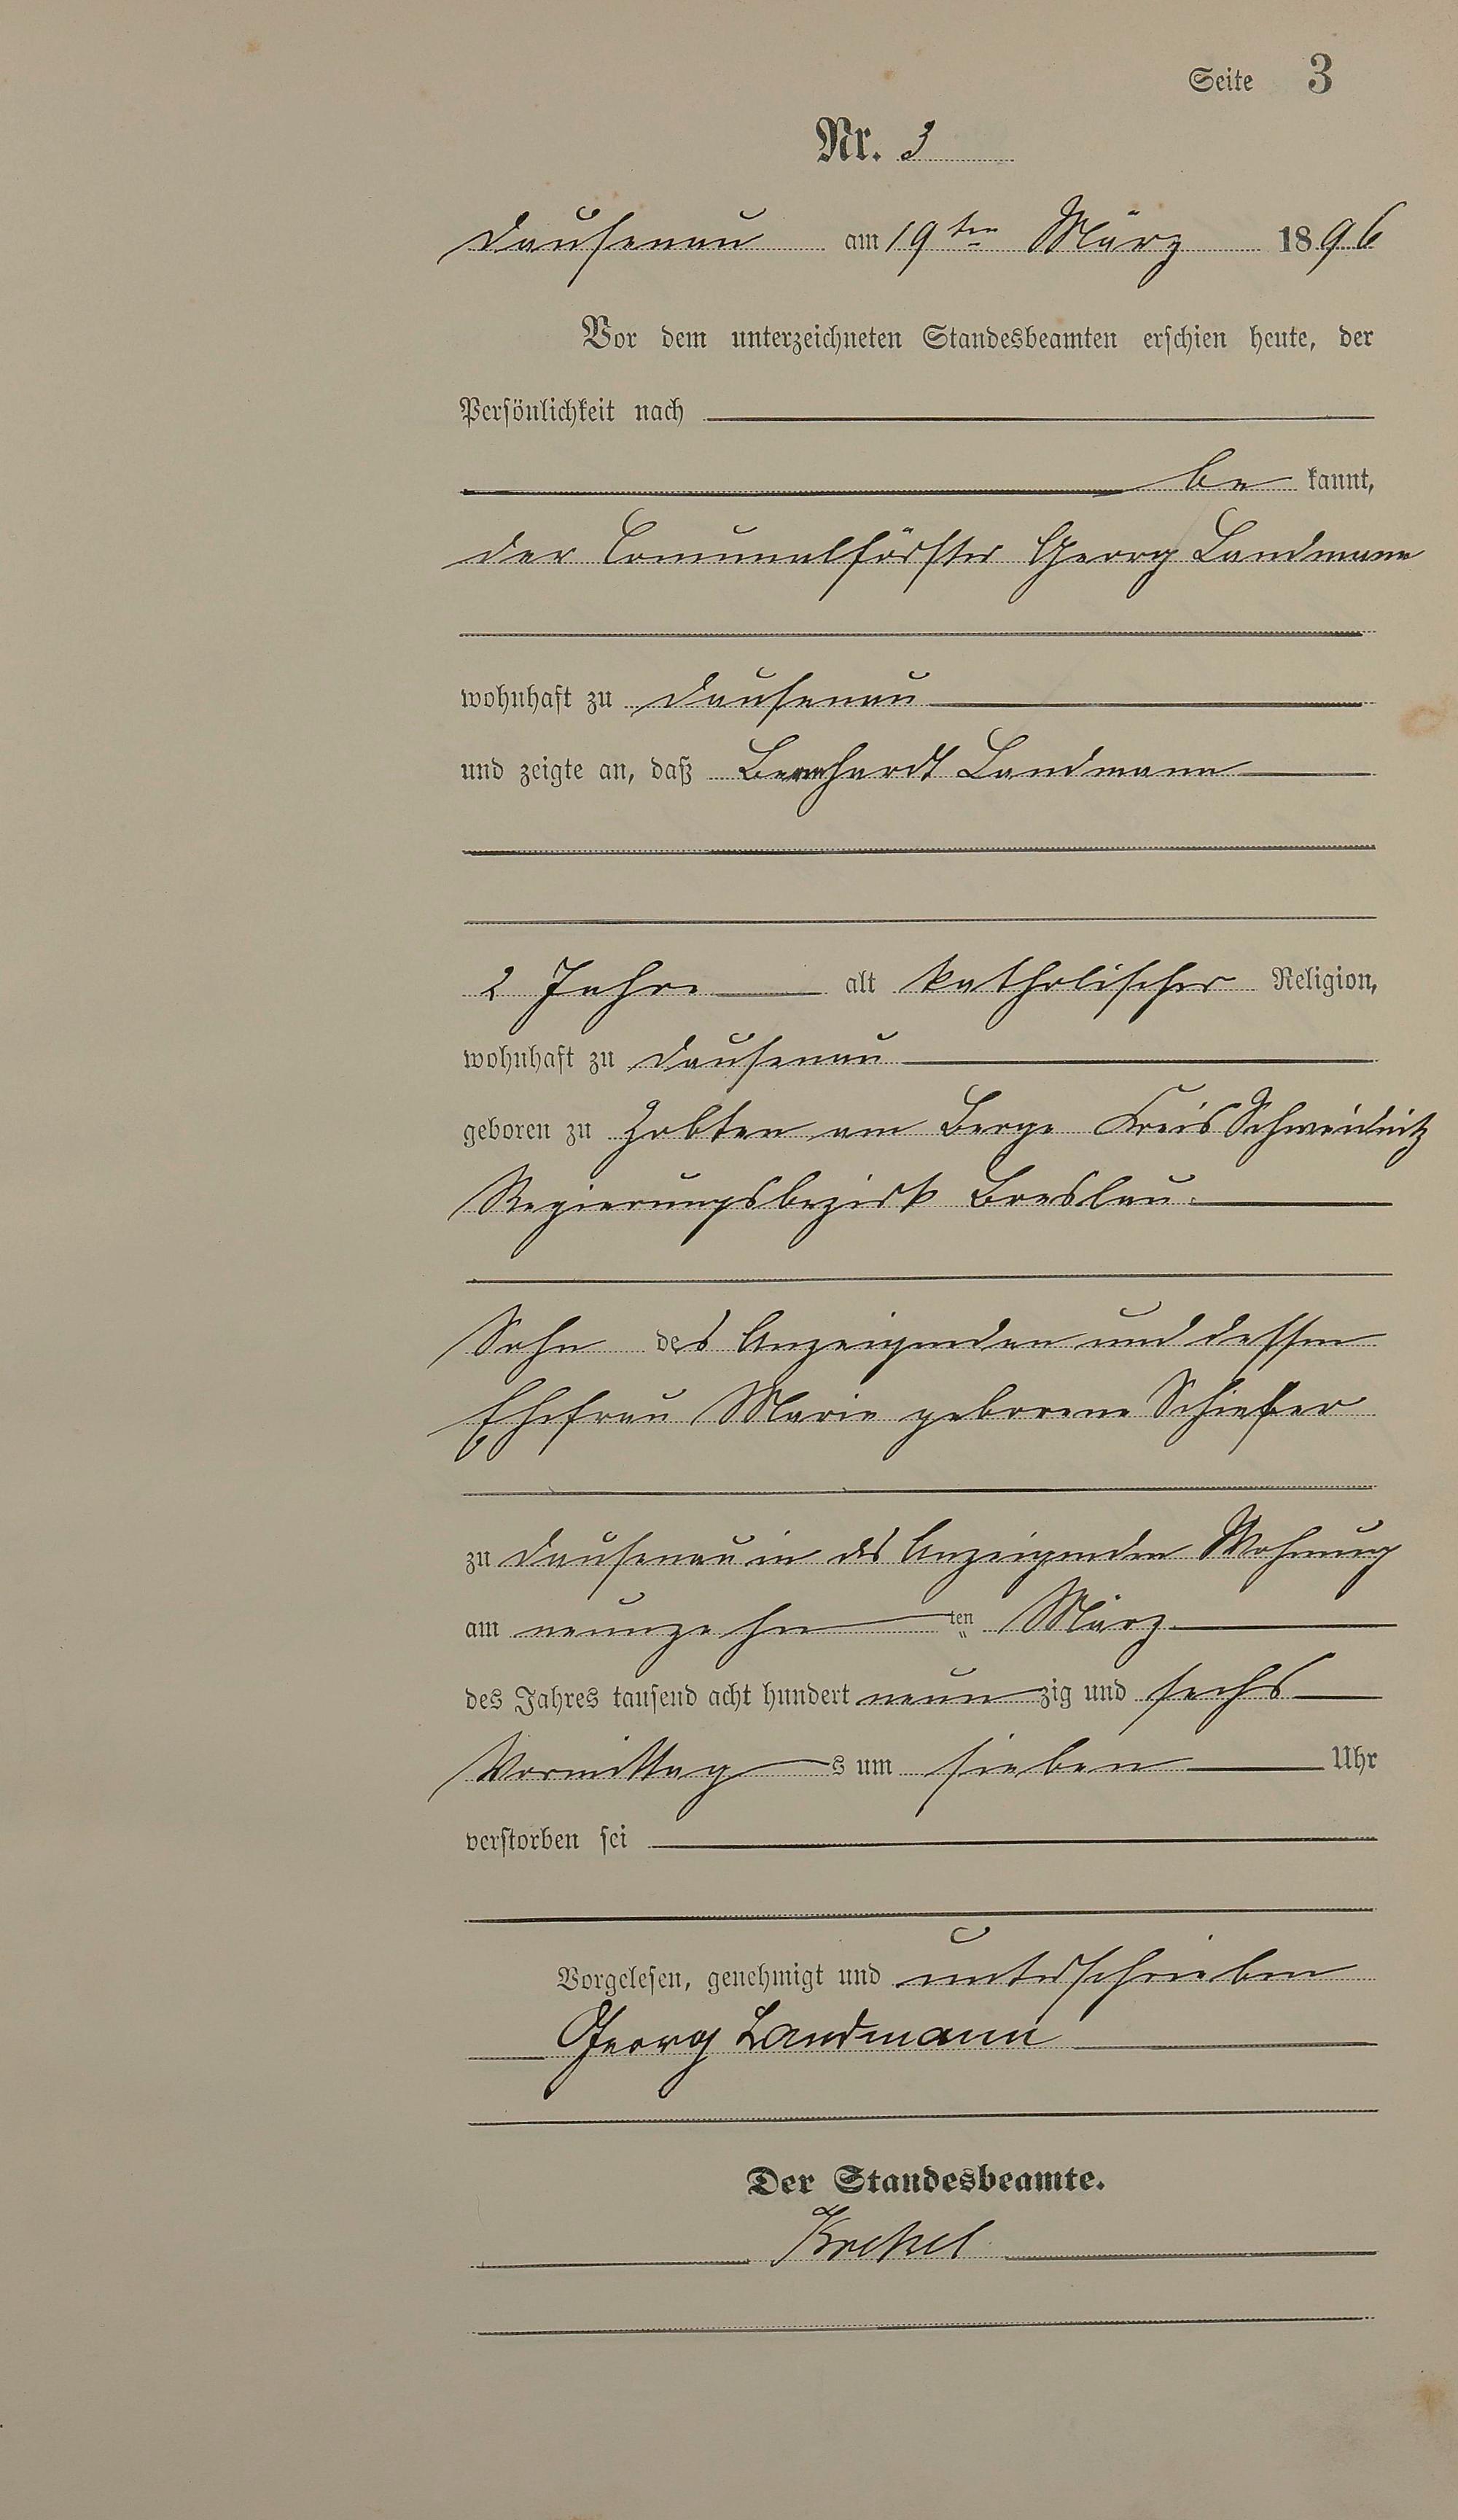 Seite 3
Nr. 3
Dausenau am 19ten März 1896
Vor dem unterzeichneten Standesbeamten erschien heute, der
Persönlichkeit nach
be kannt,
der Comunalförster Georg Landmann
wohnhaft zu Dausenau
und zeigte an, daß Bernhardt Landmann
2 Jahre alt katholischer Religion,
wohnhaft zu Dausenau
geboren zu Zobten am Berge Kreis Schweidnitz
Regierungsbezirk Breslau.
Sohn des Anzeigenden und dessen
Ehefrau Marie geborene Schiefer
zu Dausenau in des Anzeigenden Wohnung
am neunzehn ten März
des Jahres tausend acht hundert neun zig und sechs
Vormittag s um sieben Uhr
verstorben sei
Vorgelesen, genehmigt und unterschrieben
Georg Landmann
Der Standesbeamte.